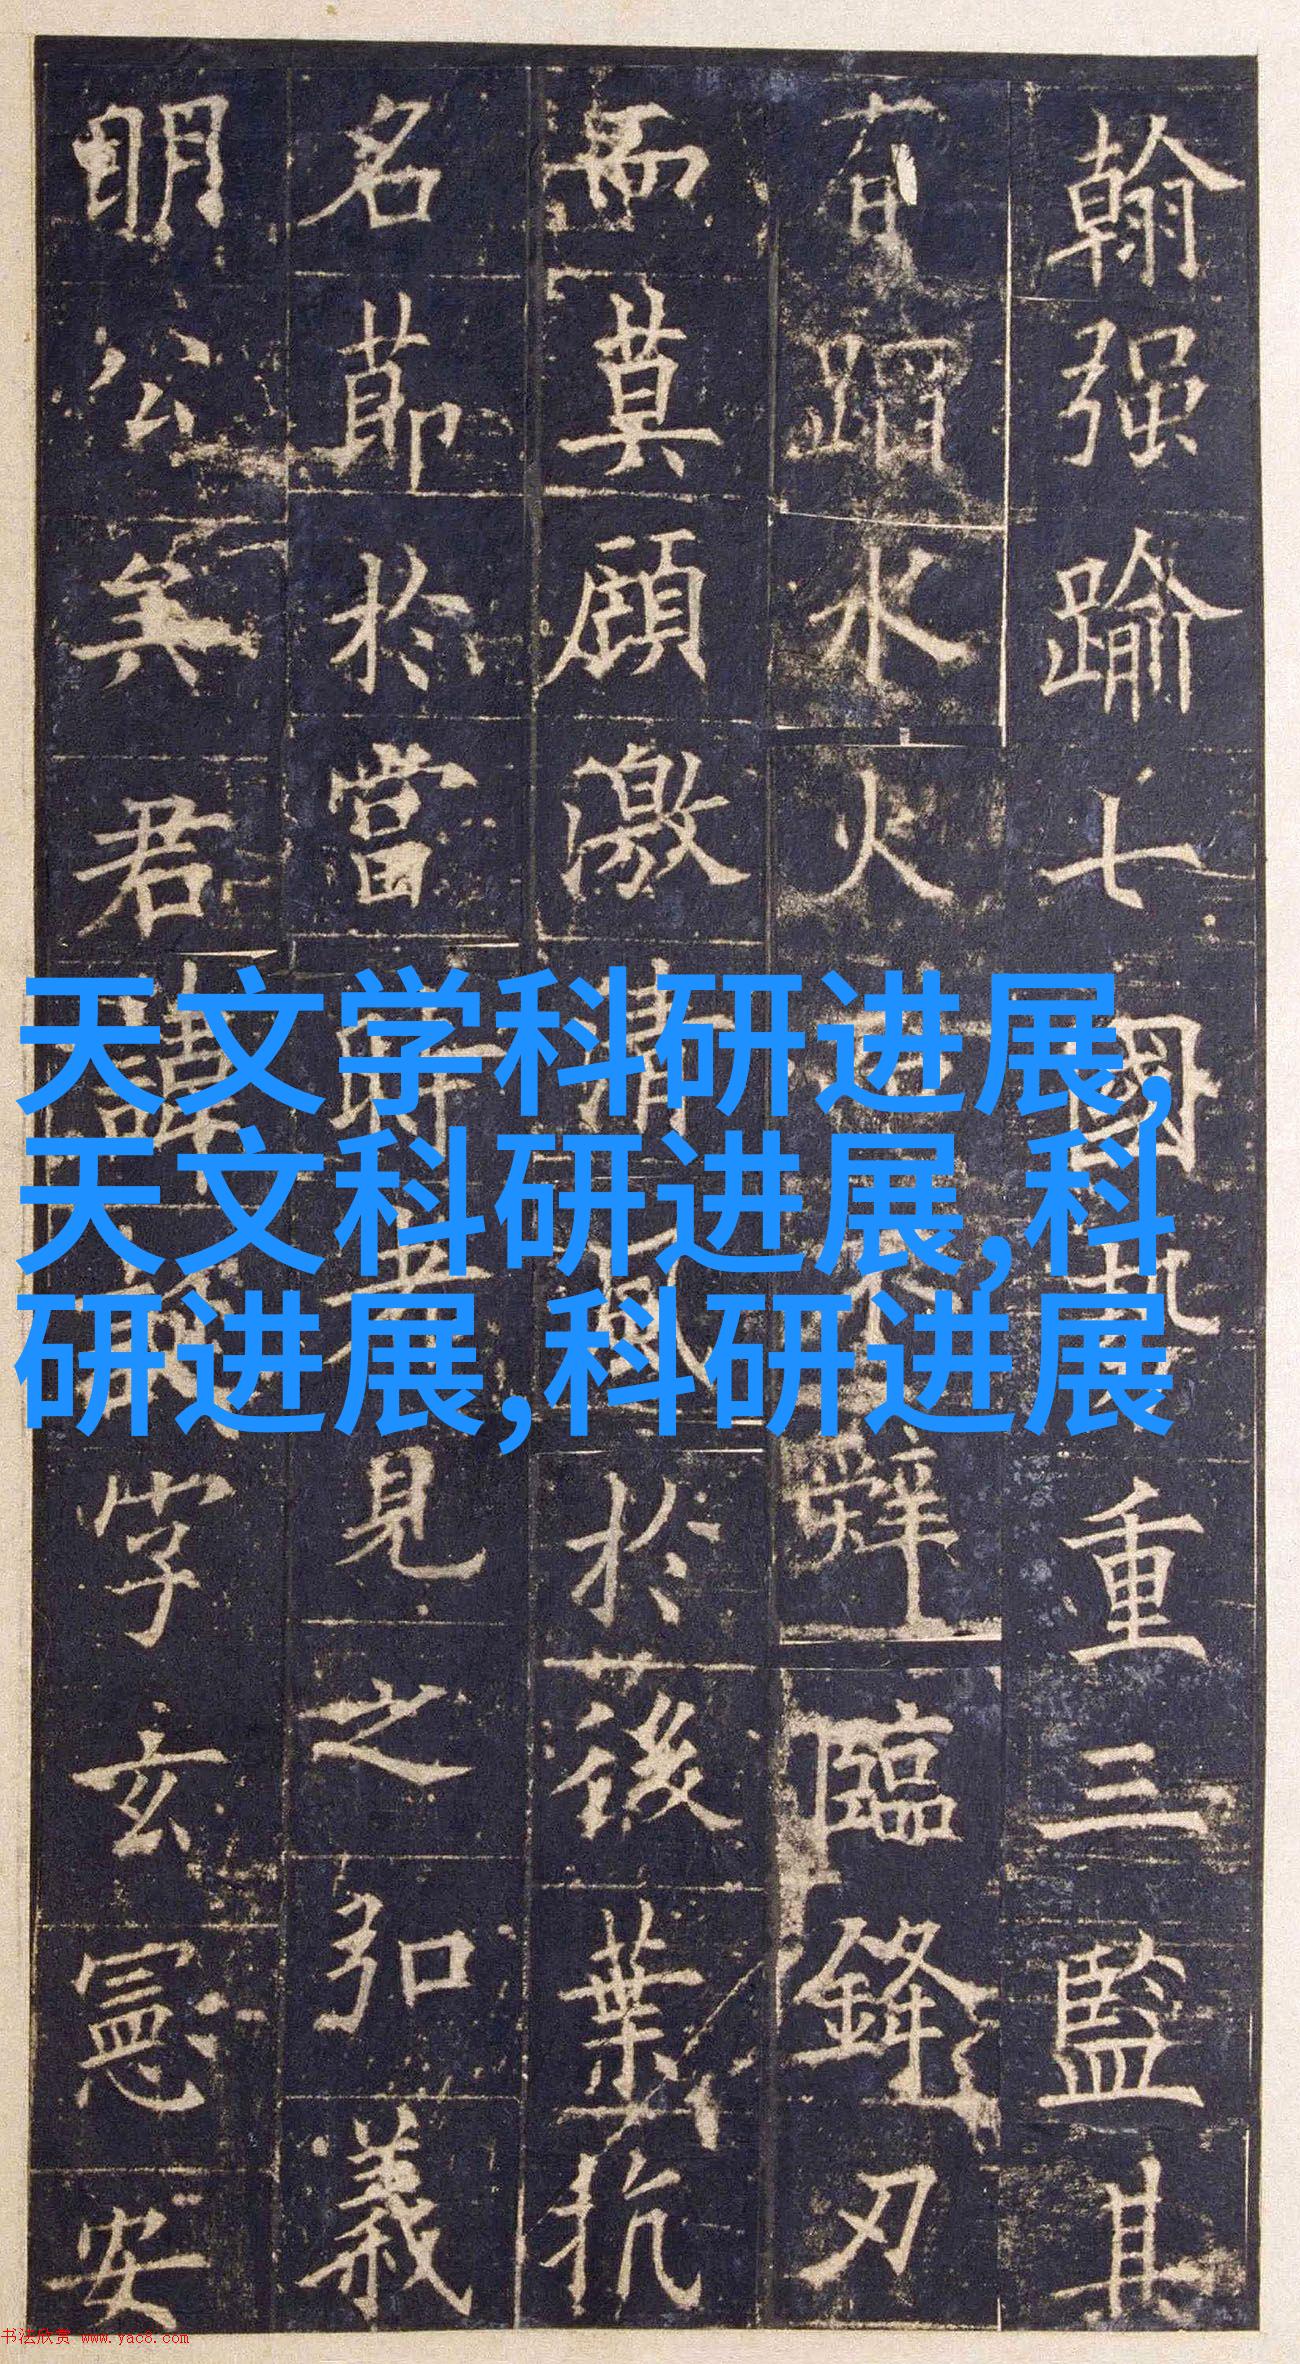 翰强踰七國勢重三監其
有蹈水火不辭臨鋒刃
而莫顧激清風於後葉抗
名節於當時者見之弘義
明公矣君諱誕字玄憲安
天文学科研进展,
天文科研进展,科
研进展,科研进展
书法欣赏 www.yac8.com